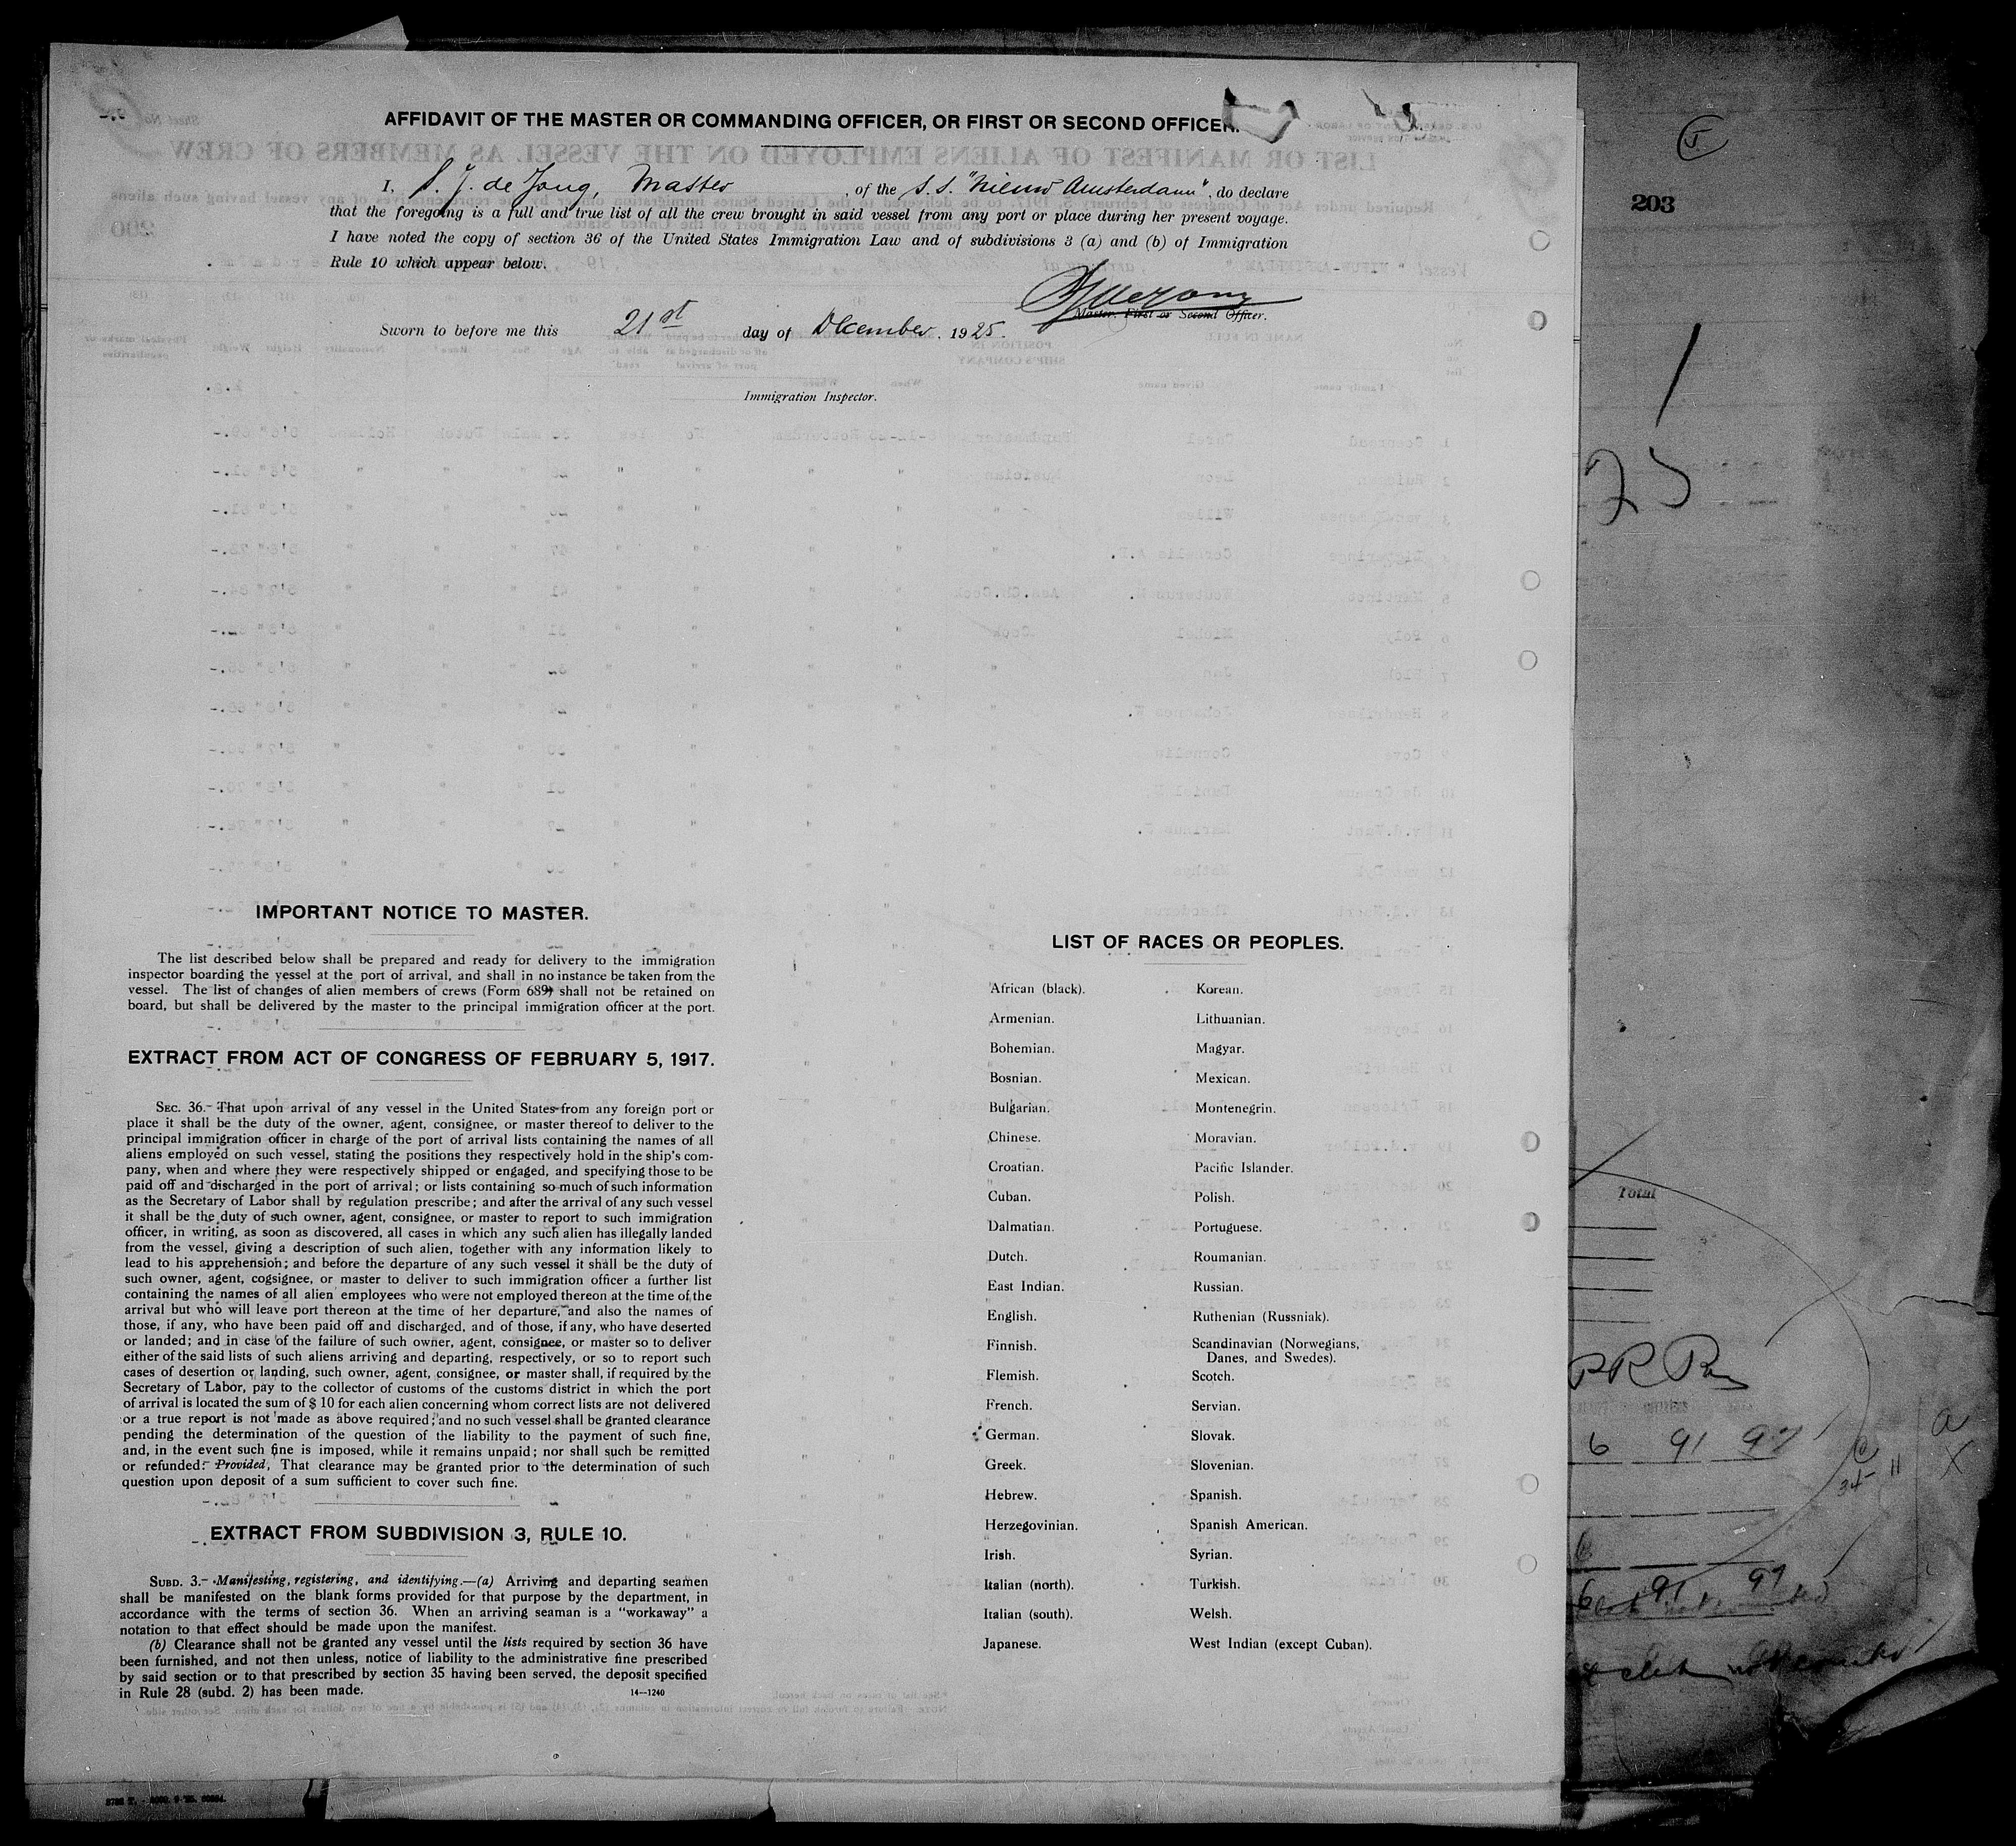 AFFIDAVIT OF THE MASTER OR COMMANDING OFFICER, OR FIRST OR SECOND OFFICER.
I, S. J. de Jong, Master, of the S.S. "Nieuw Amsterdam", do declare
that the foregoing is a full and true list of all the crew brought in said vessel from any port or place during her present voyage.
I have noted the copy of section 36 of the United States Immigration Law and of subdivisions 3 (a) and (b) of Immigration
Rule 10 which appear below.
Master, First or Second Officer.
Sworn to before me this 21st day of December, 1925.
Immigration Inspector.
IMPORTANT NOTICE TO MASTER.
The list described below shall be prepared and ready for delivery to the immigration
inspector boarding the vessel at the port of arrival, and shall in no instance be taken from the
vessel. The list of changes of alien members of crews (Form 689) shall not be retained on
board, but shall be delivered by the master to the principal immigration officer at the port.
EXTRACT FROM ACT OF CONGRESS OF FEBRUARY 5, 1917.
SEC. 36.- That upon arrival of any vessel in the United States from any foreign port or
place it shall be the duty of the owner, agent, consignee, or master thereof to deliver to the
principal immigration officer in charge of the port of arrival lists containing the names of all
aliens employed on such vessel, stating the positions they respectively hold in the ship's com-
pany, when and where they were respectively shipped or engaged, and specifying those to be
paid off and discharged in the port of arrival; or lists containing so much of such information
as the Secretary of Labor shall by regulation prescribe; and after the arrival of any such vessel
it shall be the duty of such owner, agent, consignee, or master to report to such immigration
officer, in writing, as soon as discovered, all cases in which any such alien has illegally landed
from the vessel, giving a description of such alien, together with any information likely to
lead to his apprehension; and before the departure of any such vessel it shall be the duty of
such owner, agent, cogsignee, or master to deliver to such immigration officer a further list
containing the names of all alien employees who were not employed thereon at the time of the
arrival but who will leave port thereon at the time of her departure, and also the names of
those, if any, who have been paid off and discharged, and of those, if any, who have deserted
or landed; and in case of the failure of such owner, agent, consignee, or master so to deliver
either of the said lists of such aliens arriving and departing, respectively, or so to report such
cases of desertion or landing, such owner, agent, consignee, or master shall, if required by the
Secretary of Labor, pay to the collector of customs of the customs district in which the port
of arrival is located the sum of $ 10 for each alien concerning whom correct lists are not delivered
or a true report is not made as above required; and no such vessel shall be granted clearance
pending the determination of the question of the liability to the payment of such fine,
and, in the event such fine is imposed, while it remains unpaid; nor shall such be remitted
or refunded: Provided, That clearance may be granted prior to the determination of such
question upon deposit of a sum sufficient to cover such fine.
EXTRACT FROM SUBDIVISION 3, RULE 10.
SUBD. 3.- Manifesting, registering, and identifying.—(a) Arriving and departing seamen
shall be manifested on the blank forms provided for that purpose by the department, in
accordance with the terms of section 36. When an arriving seaman is a "workaway" a
notation to that effect should be made upon the manifest.
(b) Clearance shall not be granted any vessel until the lists required by section 36 have
been furnished, and not then unless, notice of liability to the administrative fine prescribed
by said section or to that prescribed by section 35 having been served, the deposit specified
in Rule 28 (subd. 2) has been made.
14—1240
LIST OF RACES OR PEOPLES.
African (black). Korean.
Armenian. Lithuanian.
Bohemian. Magyar.
Bosnian. Mexican.
Bulgarian. Montenegrin.
Chinese. Moravian.
Croatian. Pacific Islander.
Cuban. Polish.
Dalmatian. Portuguese.
Dutch. Roumanian.
East Indian. Russian.
English. Ruthenian (Russniak).
Finnish. Scandinavian (Norwegians,
Danes, and Swedes).
Flemish. Scotch.
French. Servian.
German. Slovak.
Greek. Slovenian.
Hebrew. Spanish.
Herzegovinian. Spanish American.
Irish. Syrian.
Italian (north). Turkish.
Italian (south). Welsh.
Japanese. West Indian (except Cuban).
203
1
25
Total
6 91 97
6 91 97